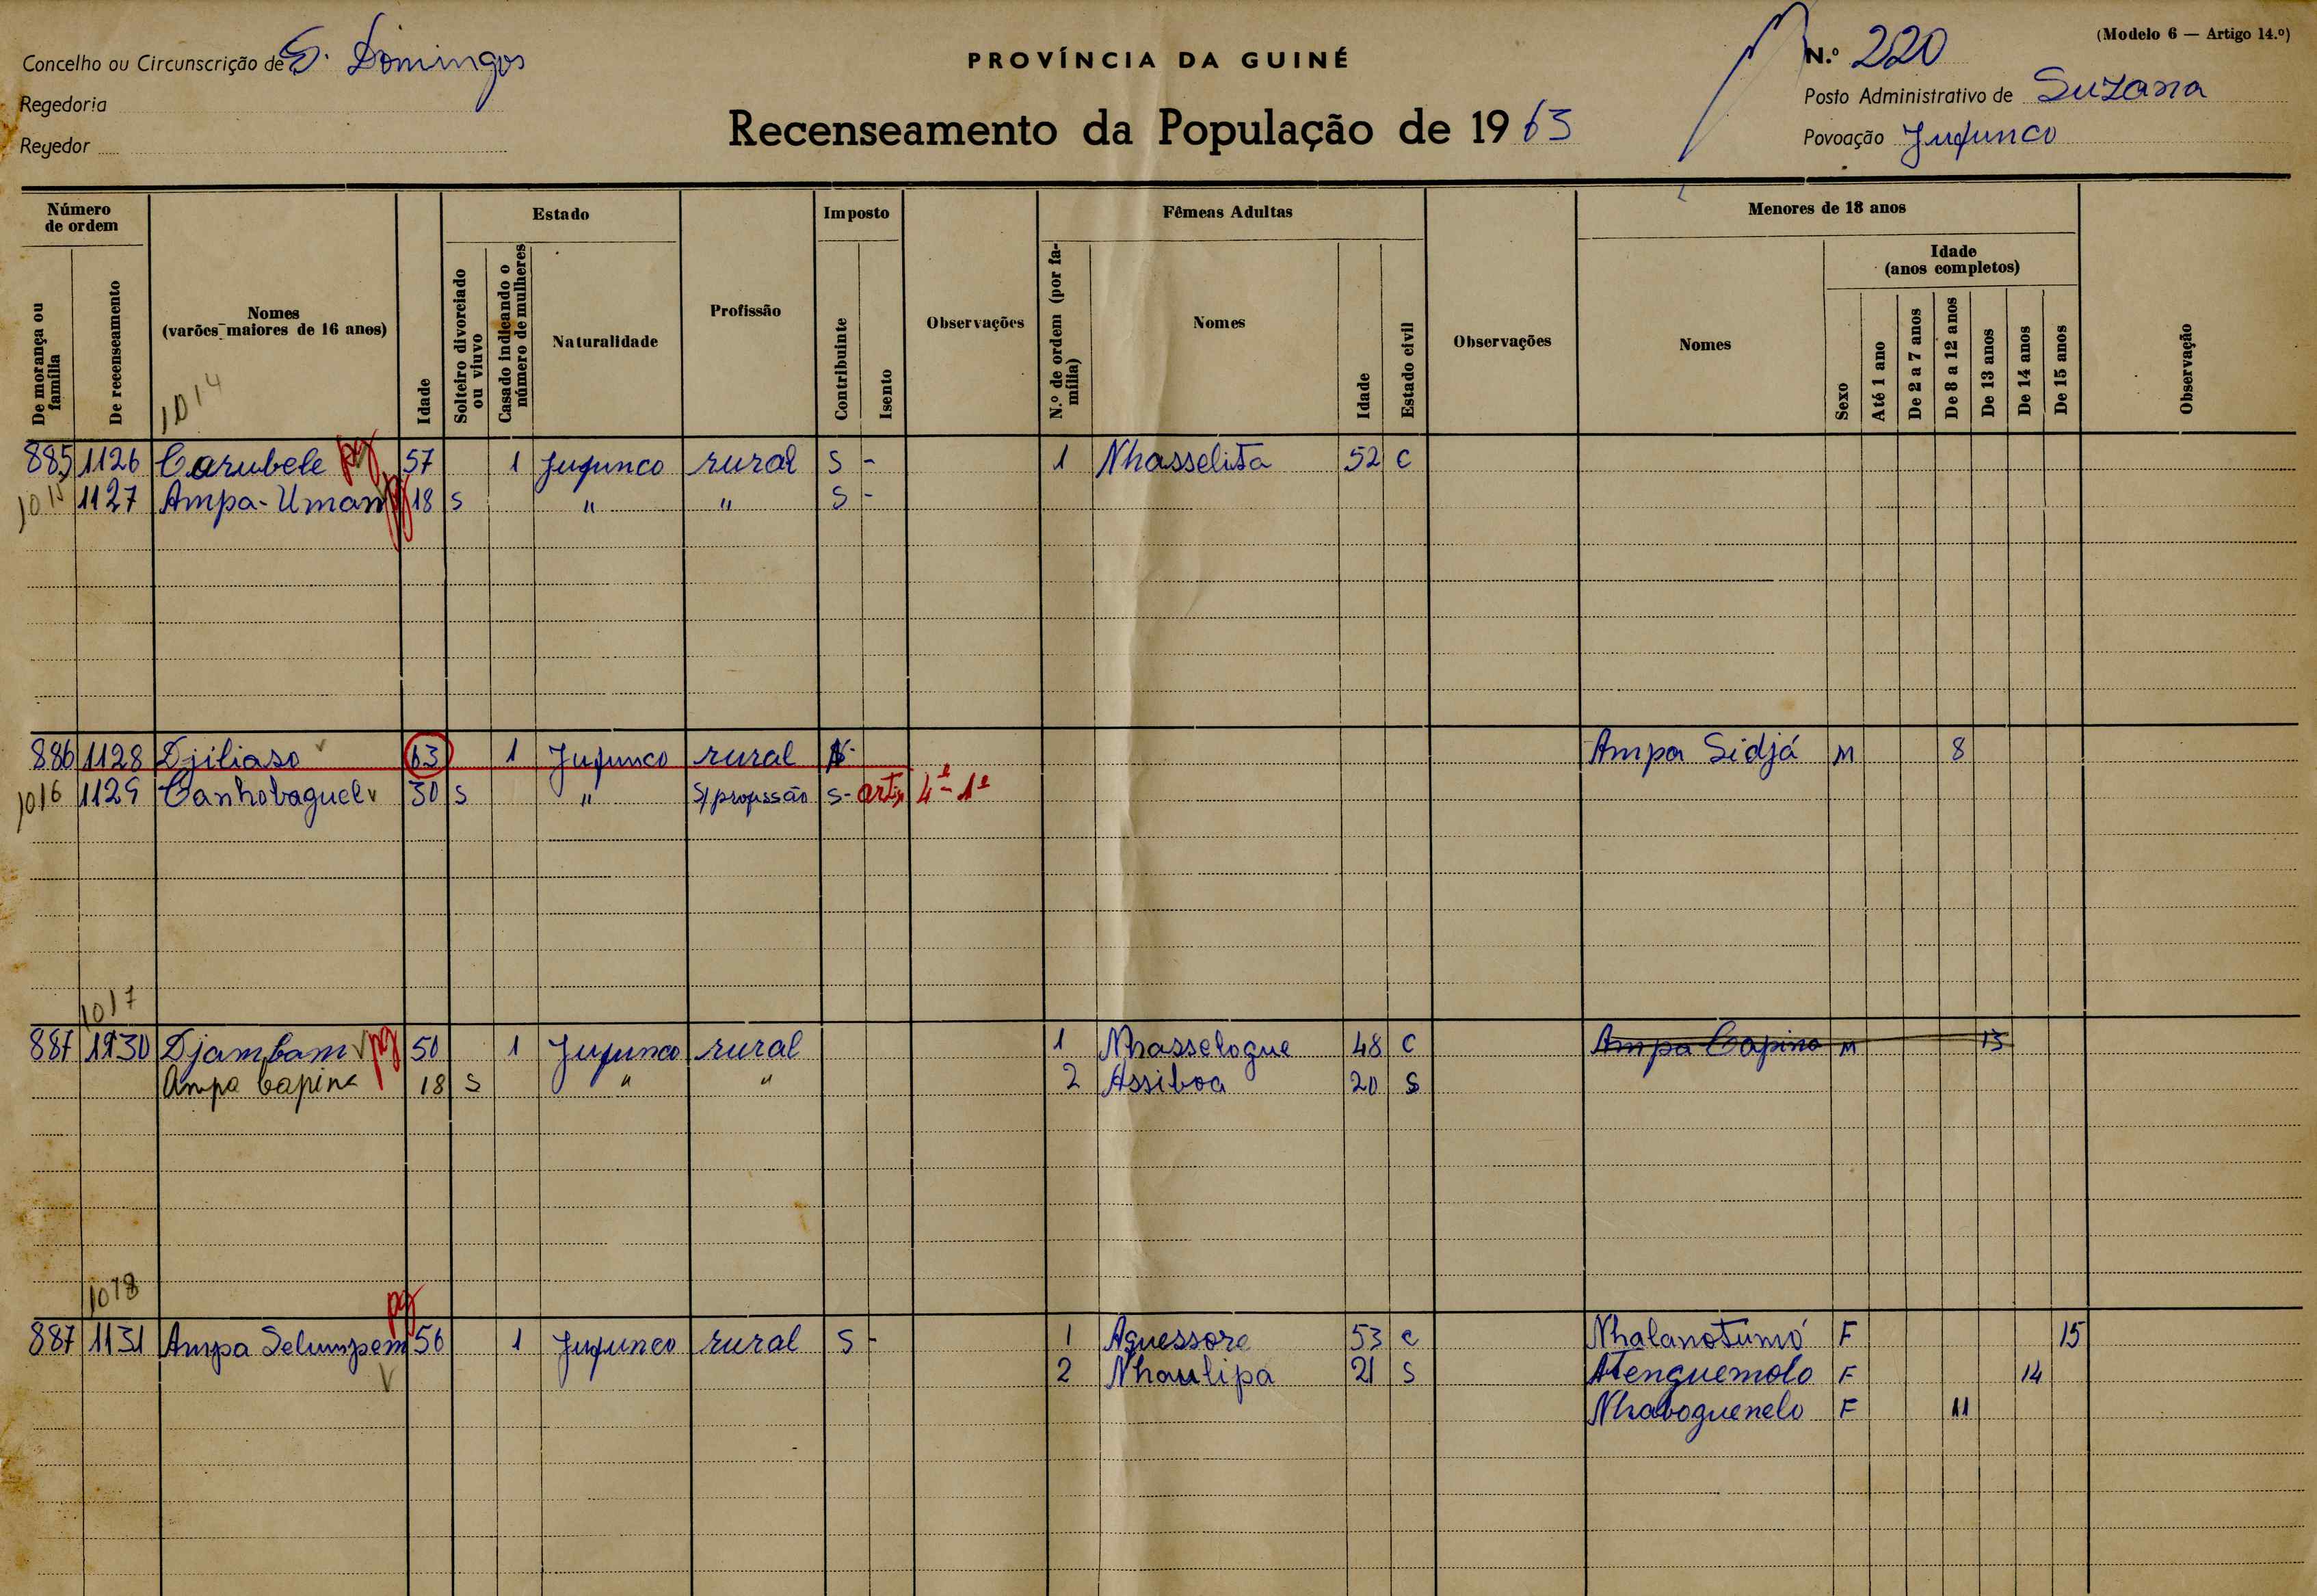 Concelho ou Circunscrição de S. Domingos
PROVÍNCIA DA GUINÉ
N.º 220
(Modelo 6 — Artigo 14.º)
Regedoria
Posto Administrativo de Suzana
Regedor
Recenseamento da População de 1963
Povoação Jufunco
Número de ordem
De morança ou família
De recenseamento
Nomes (varões maiores de 16 anos)
1014
Idade
Estado
Solteiro divorciado ou viuvo
Casado indicando o número de mulheres
Naturalidade
Profissão
Imposto
Contribuinte
Isento
Observações
Fêmeas Adultas
N.º de ordem (por família)
Nomes
Idade
Estado civil
Observações
Menores de 18 anos
Nomes
Idade (anos completos)
Sexo
Até 1 ano
De 2 a 7 anos
De 8 a 12 anos
De 13 anos
De 14 anos
De 15 anos
Observação
885 1126 Carubele pg 57 1 Jufunco rural S - 1 Nhasselita 52 C
1015 1127 Ampa-Uman pg 18 S " " S -
886 1128 Djiliaso 63 1 Jufunco rural Ampa Sidjá M 8
1016 1129 Canhobaguel 30 S " S/profissão S - artº 4º - 1º
1017
887 1130 Djambam pg 50 1 Jufunco rural 1 Nhasselogue 48 C Ampa Capina M 13
Ampa Capina 18 S " " 2 Assiboa 20 S
1018
pg
887 1131 Ampa Selumpem 56 1 Jufunco rural S - 1 Aguessore 53 C Nhalanotumó F 15
2 Nhaulipa 21 S Atenguemolo F 14
Nhaboguenelo F 11